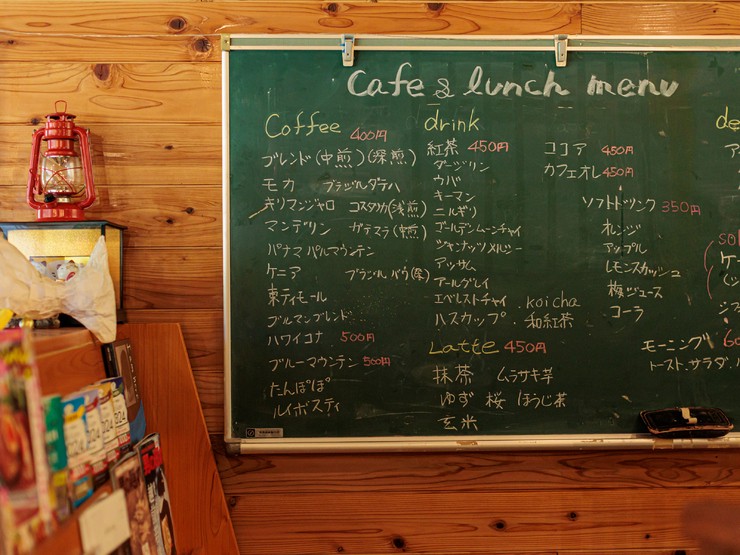 Cafe & lunch menu
Coffee 400円
ブレンド(中煎)(深煎)
モカ ブラジルダテハ
キリマンジャロ コスタリカ(浅煎)
マンデリン ガテマラ(中煎)
パナマ パルマウンテン
ケニア ブラジル
東ティモール
ブルマンブレンド
ハワイコナ 500円
ブルーマウンテン 500円
たんぽぽ
ルイボスティ
drink
紅茶 450円
ダージリン
ウバ
キーマン
ニルギリ
ゴールデンムーンチャイ
アッサム
アールグレイ
エベレストチャイ . koicha
ハスカップ . 和紅茶
Latte 450円
抹茶 ムラサキ芋
ゆず 桜 ほうじ茶
玄米
ココア 450円
カフェオレ 450円
ソフトドリンク 350円
オレンジ
アップル
レモンスカッシュ
梅ジュース
コーラ
モーニング
トースト.サラダ.
de